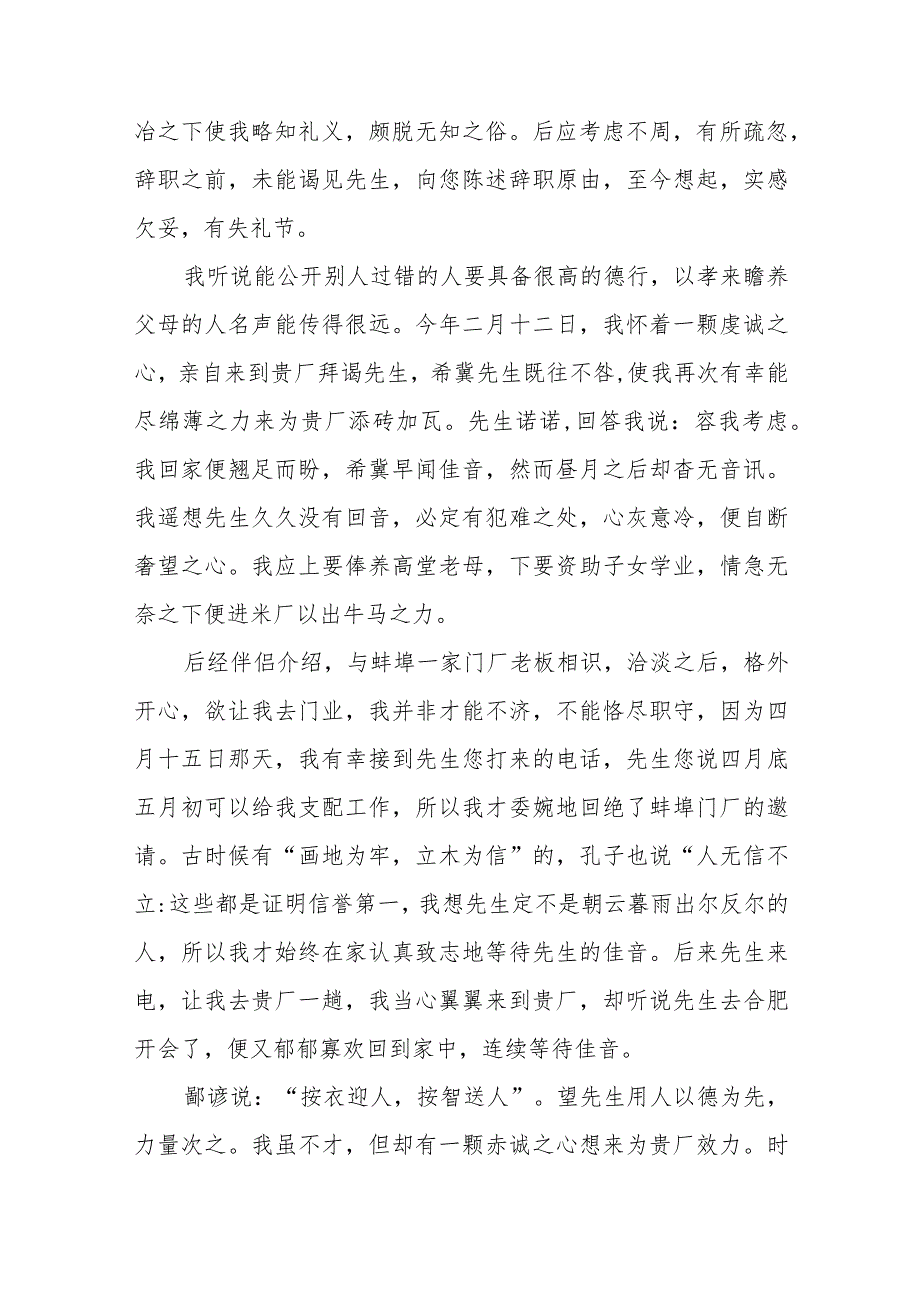 冶之下使我略知礼义，颇脱无知之俗。后应考虑不周，有所疏忽，
辞职之前，未能谒见先生，向您陈述辞职原由，至今想起，实感
欠妥，有失礼节。
我听说能公开别人过错的人要具备很高的德行，以孝来瞻养
父母的人名声能传得很远。今年二月十二日，我怀着一颗虔诚之
心，亲自来到贵厂拜谒先生，希冀先生既往不咎,使我再次有幸能
尽绵薄之力来为贵厂添砖加瓦。先生诺诺,回答我说：容我考虑。
我回家便翘足而盼，希冀早闻佳音，然而昼月之后却杳无音讯。
我遥想先生久久没有回音，必定有犯难之处，心灰意冷，便自断
奢望之心。我应上要俸养高堂老母，下要资助子女学业，情急无
奈之下便进米厂以出牛马之力。
后经伴侣介绍，与蚌埠一家门厂老板相识，洽淡之后，格外
开心，欲让我去门业，我并非才能不济，不能恪尽职守，因为四
月十五日那天，我有幸接到先生您打来的电话，先生您说四月底
五月初可以给我支配工作，所以我才委婉地回绝了蚌埠门厂的邀
请。古时候有“画地为牢，立木为信”的，孔子也说“人无信不
立:这些都是证明信誉第一,我想先生定不是朝云暮雨出尔反尔的
人，所以我才始终在家认真致志地等待先生的佳音。后来先生来
电，让我去贵厂一趟，我当心翼翼来到贵厂，却听说先生去合肥
开会了，便又郁郁寡欢回到家中，连续等待佳音。
鄙谚说：“按衣迎人，按智送人”。望先生用人以德为先，
力量次之。我虽不才，但却有一颗赤诚之心想来为贵厂效力。时